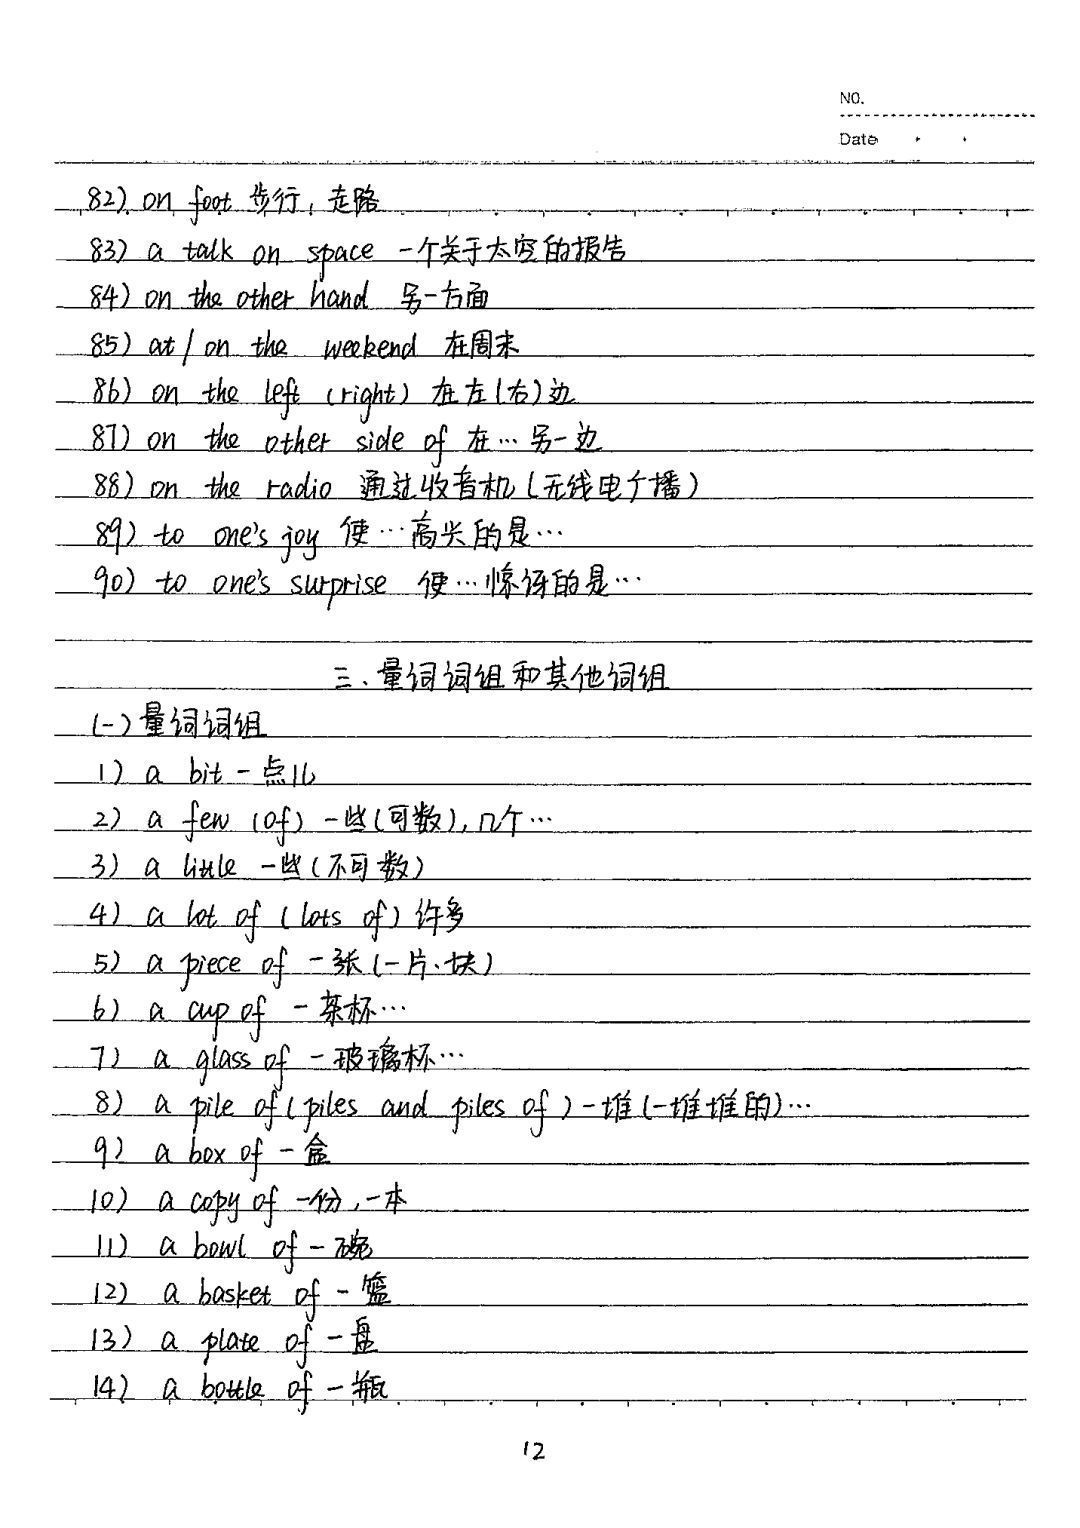 NO.
Date
82) on foot 步行, 走路
83) a talk on space 一个关于太空的报告
84) on the other hand 另一方面
85) at/on the weekend 在周末
86) on the left (right) 在左(右)边
87) on the other side of 在…另一边
88) on the radio 通过收音机(无线电广播)
89) to one's joy 使…高兴的是…
90) to one's surprise 使…惊讶的是…
三、量词词组和其他词组
(一)量词词组
1) a bit 一点儿
2) a few (of) 一些(可数), 几个…
3) a little 一些(不可数)
4) a lot of (lots of) 许多
5) a piece of 一张(一片、块)
6) a cup of 一茶杯…
7) a glass of 一玻璃杯…
8) a pile of (piles and piles of) 一堆(一堆堆的)…
9) a box of 一盒
10) a copy of 一份, 一本
11) a bowl of 一碗
12) a basket of 一篮
13) a plate of 一盘
14) a bottle of 一瓶
12